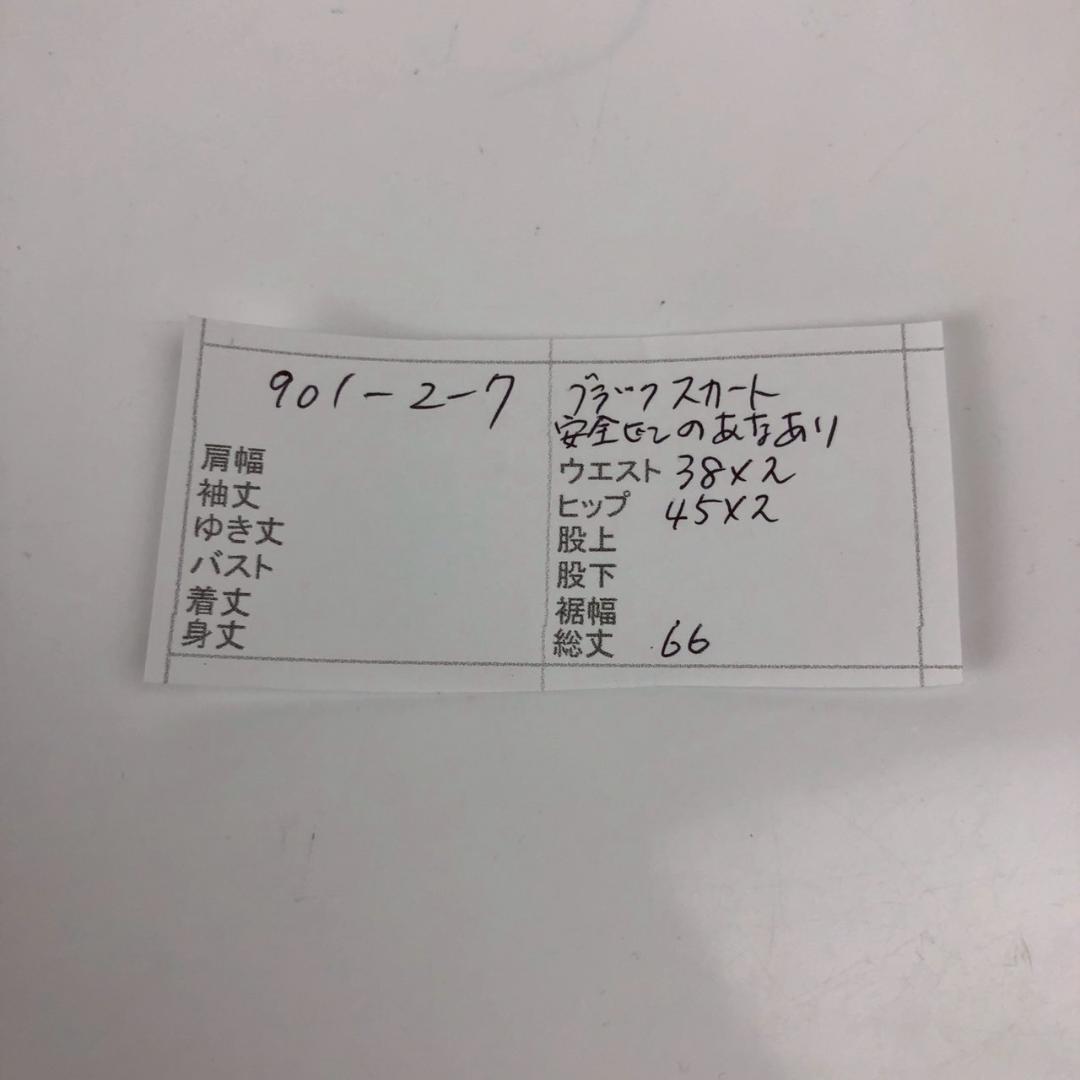 901-2-7
肩幅
袖丈
ゆき丈
バスト
着丈
身丈
ブラックスカート
安全ピンのあなあり
ウエスト 38×2
ヒップ 45×2
股上
股下
裾幅
総丈 66